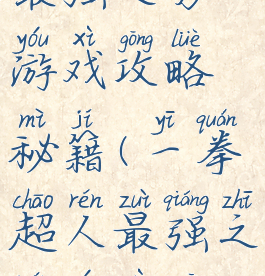 yóu xì gōng lüè
游戏攻略
mì jí yī quán
秘籍(一拳
chāo rén zuì qiáng zhī
超人最强之